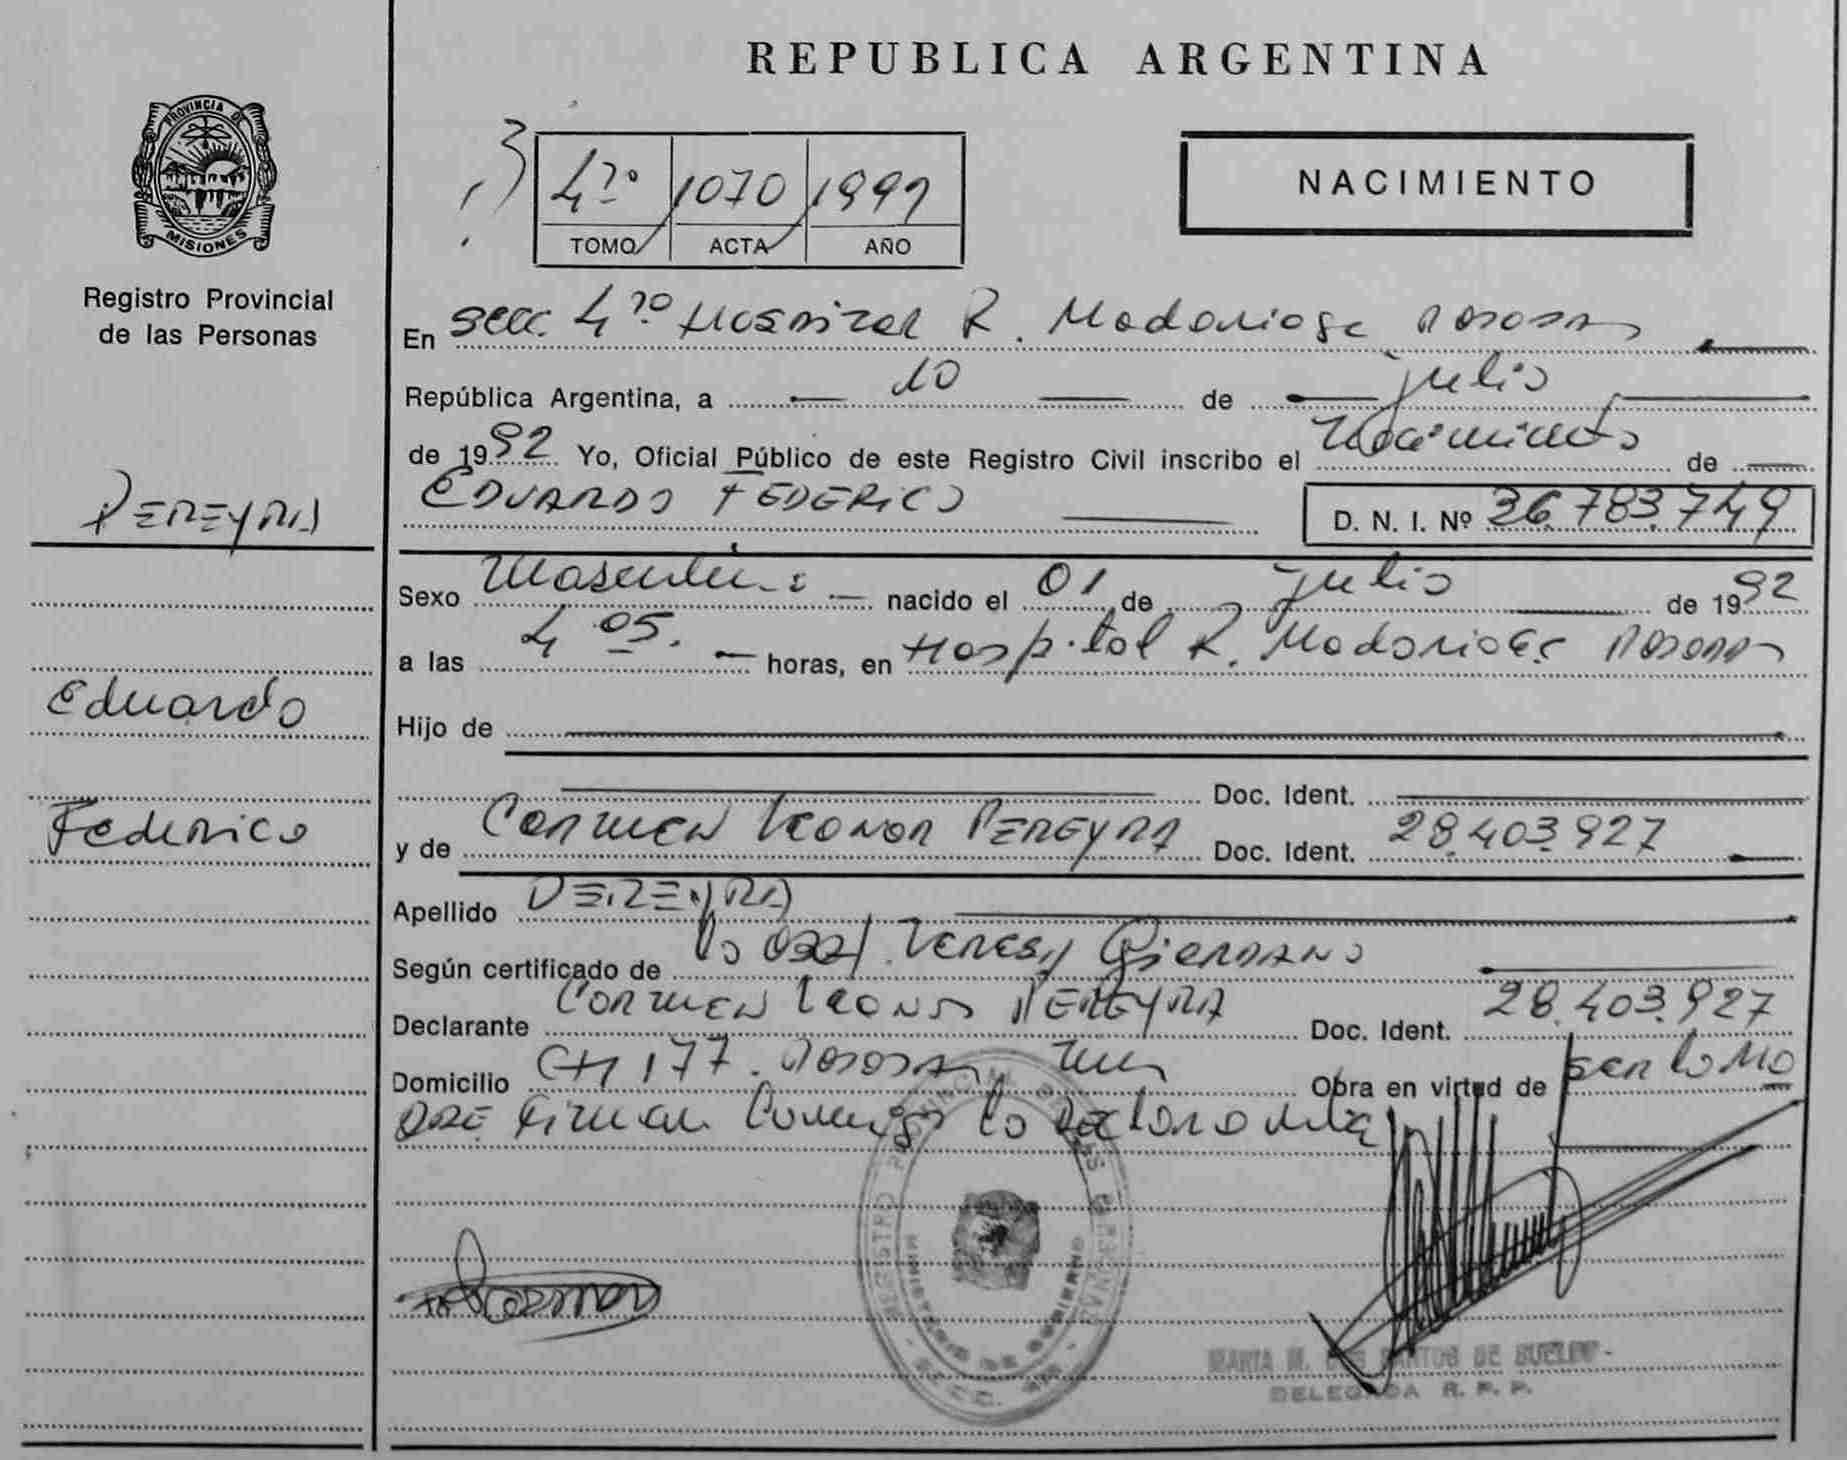 REPUBLICA ARGENTINA
PROVINCIA DE
MISIONES
Registro Provincial
de las Personas
4ta 1070
TOMO ACTA AÑO
NACIMIENTO
En secc. 4ta Hospital R. Madariaga Posadas
República Argentina, a 10 de julio
de 1992 Yo, Oficial Público de este Registro Civil inscribo el Nacimiento de
PEREYRA
EDUARDO FEDERICO
D. N. I. Nº 36.783.749
Sexo Masculino nacido el 01 de julio de 1992
a las 4 05. horas, en Hospital R. Madariaga Posadas
Eduardo
Hijo de
Doc. Ident.
Federico
y de CARMEN Leonor PEREYRA Doc. Ident. 28.403.927
Apellido PEREYRA
Según certificado de Teresa Giordano
Declarante CARMEN Leonor PEREYRA Doc. Ident. 28.403.927
Domicilio CH 177. Posadas Obra en virtud de ser la Madre
que firma conmigo
REGISTRO PROVINCIAL DE LAS PERSONAS
MINISTERIO DE GOBIERNO
MARTA M. DOS SANTOS DE
DELEGADA R. P. P.